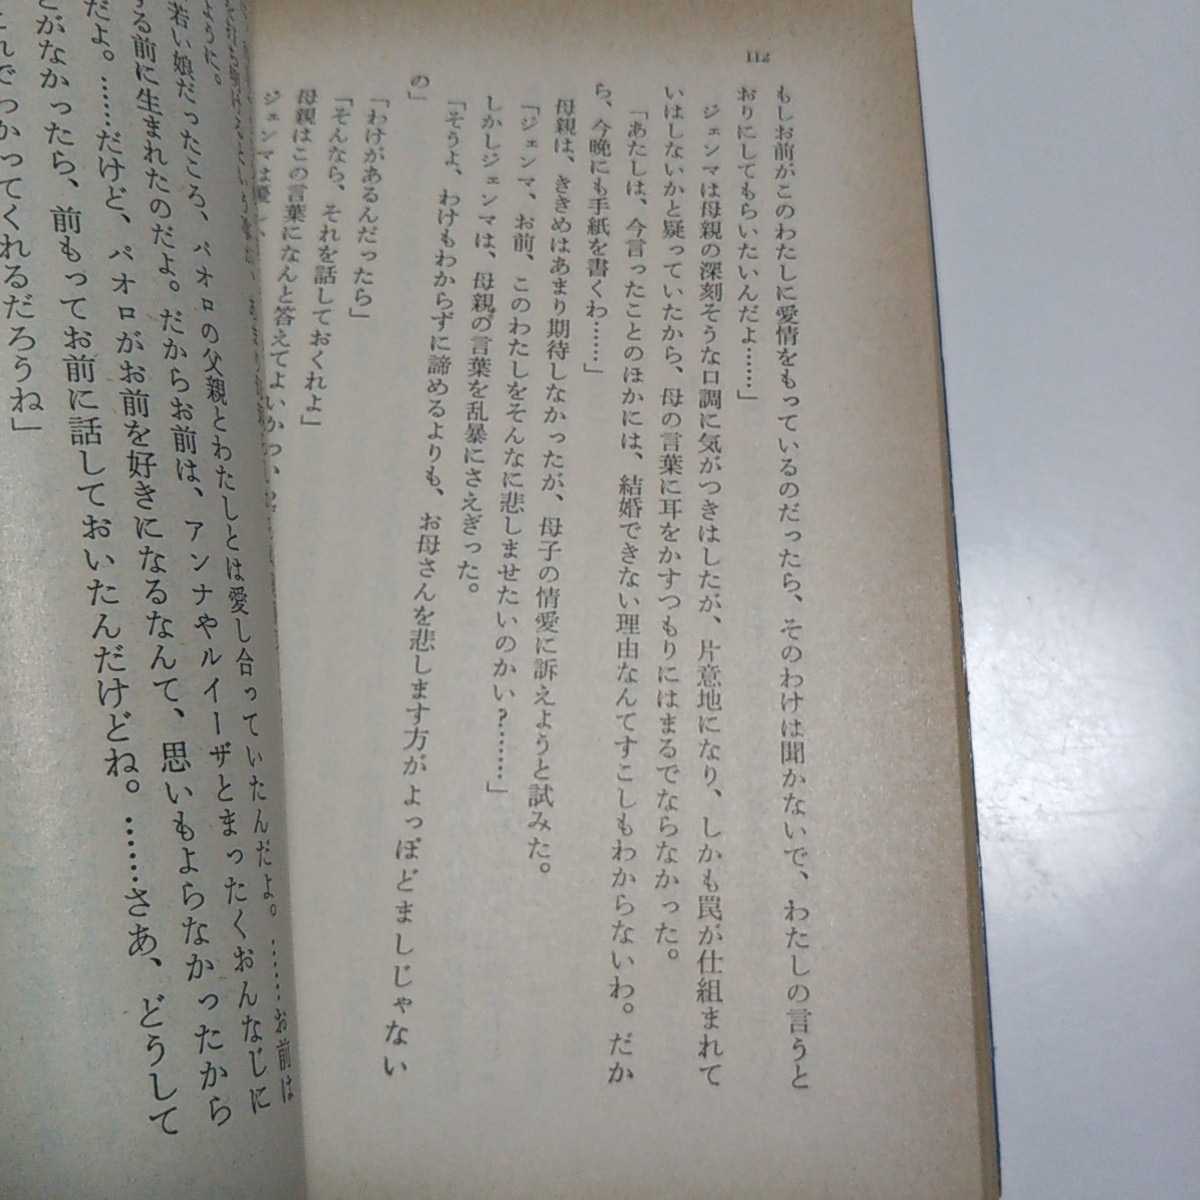 112
もしお前がこのわたしに愛情をもっているのだったら、そのわけは聞かないで、わたしの言うと
おりにしてもらいたいんだよ……」
ジェンマは母親の深刻そうな口調に気がつきはしたが、片意地になり、しかも罠が仕組まれて
いはしないかと疑っていたから、母の言葉に耳をかすつもりにはまるでならなかった。
「あたしは、今言ったことのほかには、結婚できない理由なんてすこしもわからないわ。だか
ら、今晩にも手紙を書くわ……」
母親は、ききめはあまり期待しなかったが、母子の情愛に訴えようと試みた。
「ジェンマ、お前、このわたしをそんなに悲しませたいのかい?……」
しかしジェンマは、母親の言葉を乱暴にさえぎった。
「そうよ、わけもわからずに諦めるよりも、お母さんを悲します方がよっぽどましじゃない
の」
「わけがあるんだったら」
「そんなら、それを話しておくれよ」
母親はこの言葉になんと答えてよいかわ
ジェンマは
ように。
若い娘だったころ、パオロの父親とわたしとは愛し合っていたんだよ。……お前は
する前に生まれたのだよ。だからお前は、アンナやルイーザとまったくおんなじに
だよ。……だけど、パオロがお前を好きになるなんて、思いもよらなかったから
とがなかったら、前もってお前に話しておいたんだけどね。……さあ、どうして
これでわかってくれるだろうね」